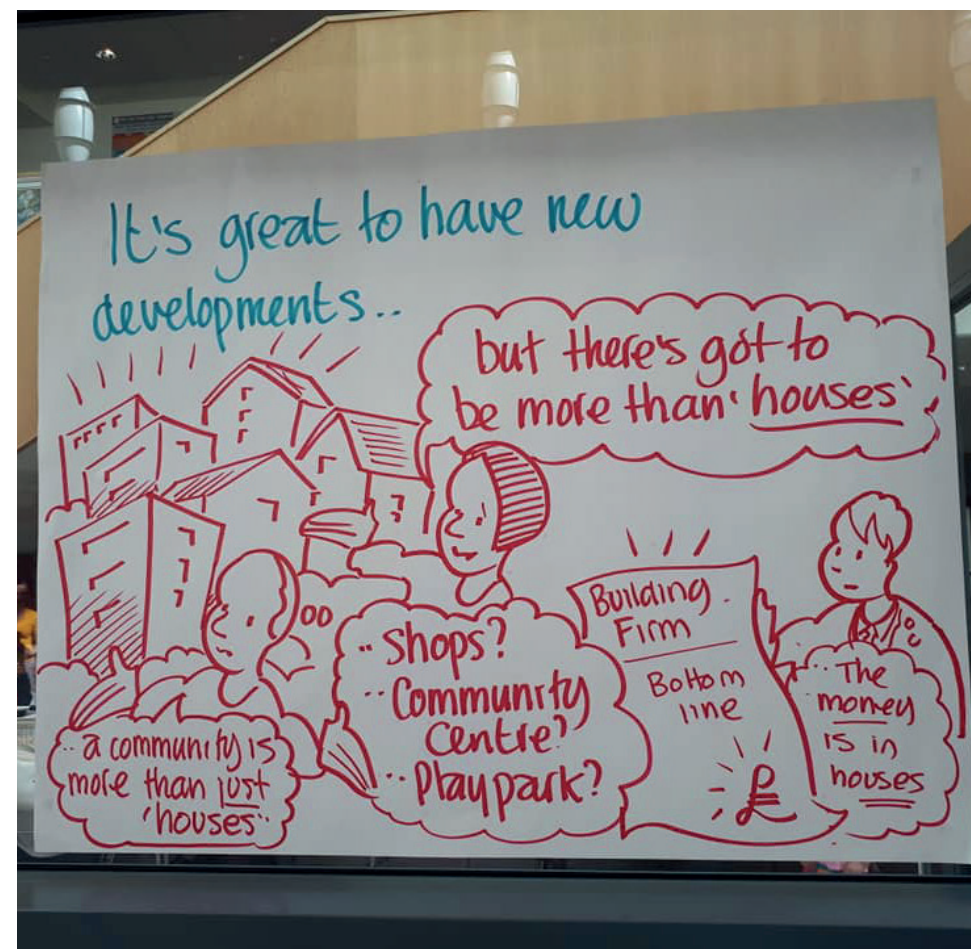 It's great to have new
developments..
but there's got to
be more than 'houses'
.. a community is
more than just
'houses'..
.. Shops?
.. Community
Centre?
.. Play park?
Building
Firm
Bottom
line
£
.. The
money
is in
houses